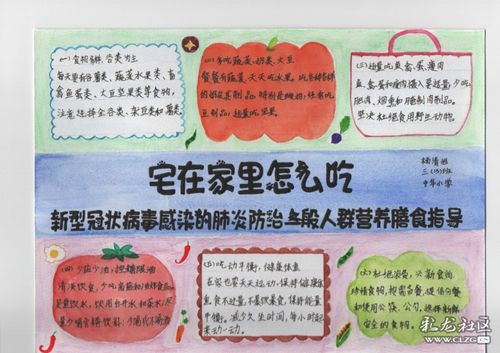 (一)食物多样,谷类为主
每天要有谷薯类、蔬菜水果类、畜
禽鱼蛋类、大豆坚果类等食物,
注意选择全谷类、杂豆类和薯类。
(二)多吃蔬菜、奶类、大豆
餐餐有蔬菜,天天吃水果。吃各种各样
的奶及其制品,特别是酸奶,经常吃
豆制品,适量吃坚果。
(三)适量吃鱼、禽、蛋、瘦肉
鱼、禽、蛋和瘦肉摄入要适量,少吃
肥肉、烟熏和腌制肉制品。
坚决杜绝食用野生动物。
宅在家里怎么吃
三(13)班
中华小学
新型冠状病毒感染的肺炎防治 人群营养膳食指导
(四)少盐少油,控糖限酒
清淡饮食,少吃高盐和油炸食品
足量饮水,
(五)吃动平衡,健康体重
在家也要天天运动,保持健康体重
食不过量,不暴饮暴食,保持能量
平衡。减少久坐时间,每小时起
来动一动。
(六)杜绝浪费,兴新食尚
珍惜食物,按需备餐,提倡分餐
和使用公筷、公勺。选择新鲜
安全的食物。
乳龙社区
WWW.CLZG.CN